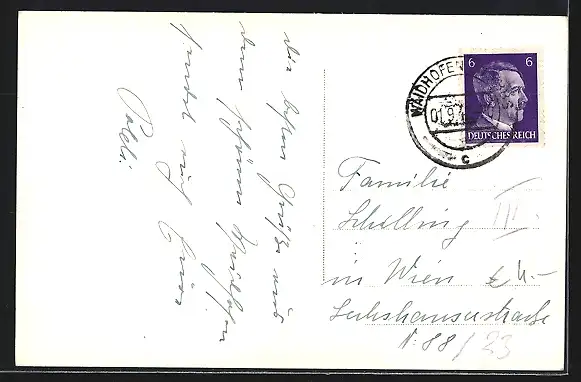 Die besten Grüße aus
dem schönen Waidhofen
sendet euch Eure
Poldi.
WAIDHOFEN
01.9.4
c
6 6
DEUTSCHES REICH
Familie
Schilling III.
in Wien
Sechshauserstraße
N: 88/23